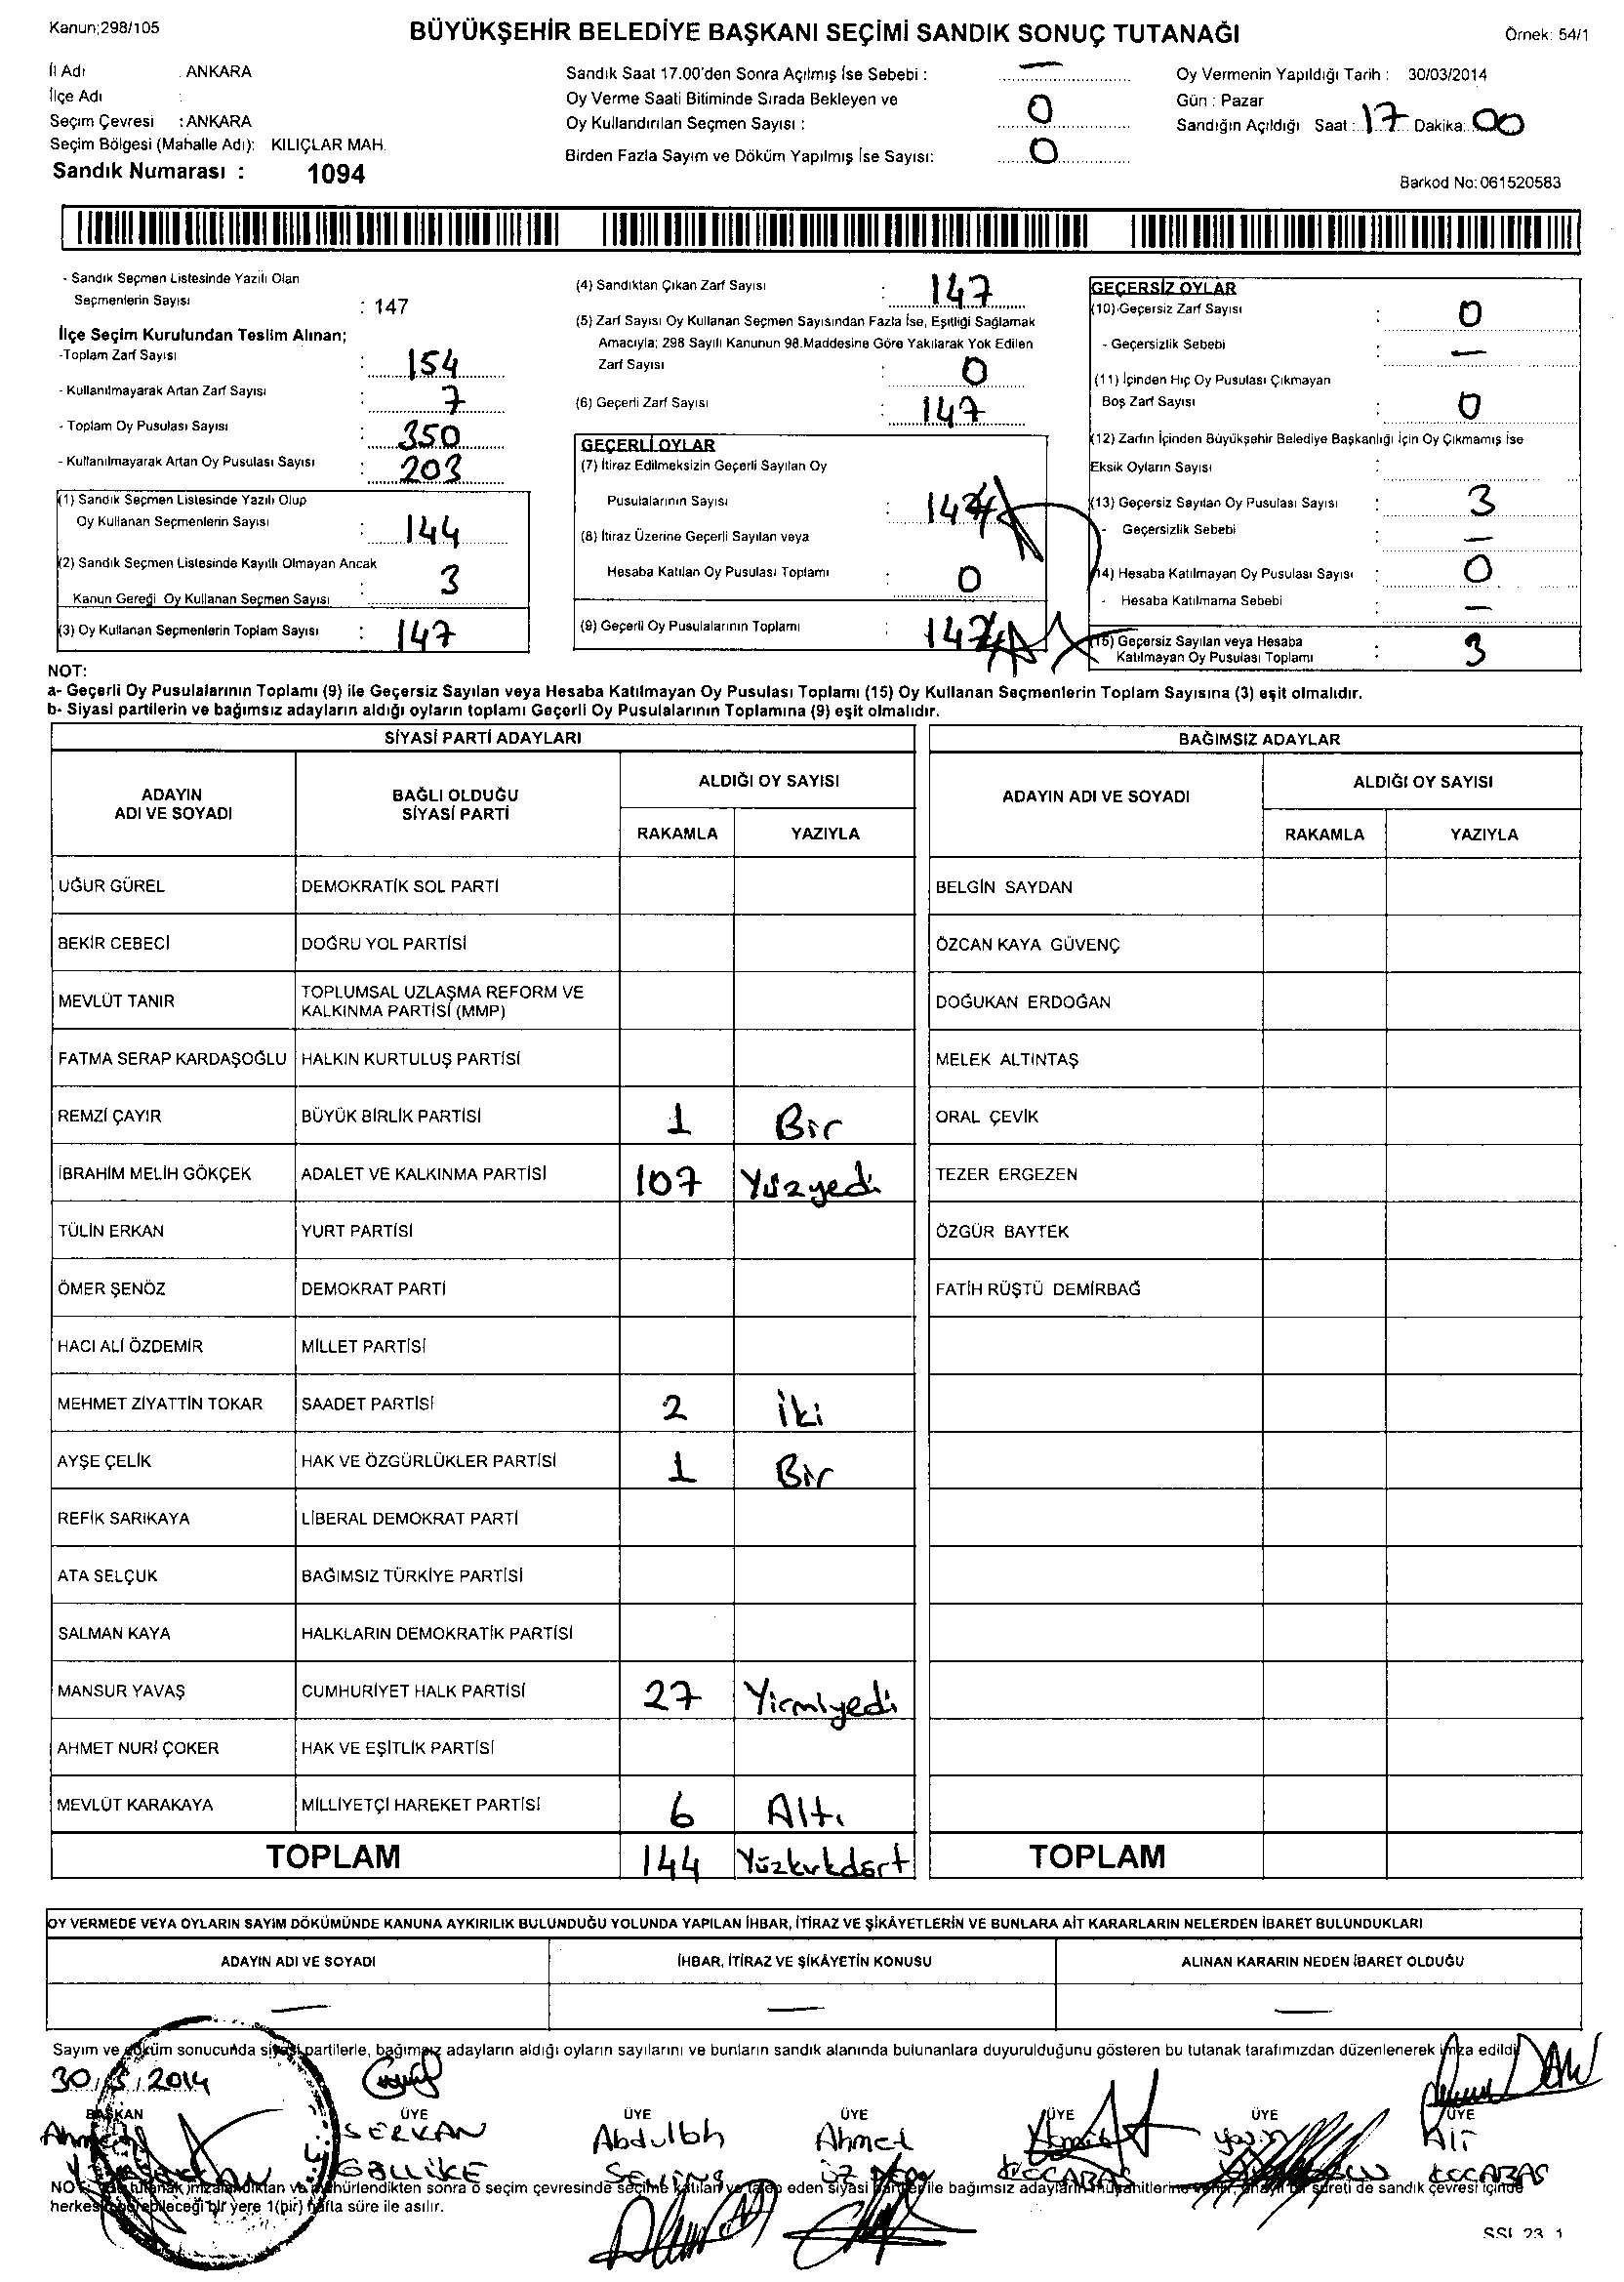 Kanun;298/105
BÜYÜKŞEHİR BELEDİYE BAŞKANI SEÇİMİ SANDIK SONUÇ TUTANAĞI
Örnek: 54/1
İl Adı : ANKARA
İlçe Adı :
Seçim Çevresi : ANKARA
Seçim Bölgesi (Mahalle Adı): KILIÇLAR MAH.
Sandık Numarası : 1094
Sandık Saat 17.00'den Sonra Açılmış İse Sebebi : —
Oy Verme Saati Bitiminde Sırada Bekleyen ve
Oy Kullandırılan Seçmen Sayısı : 0
Birden Fazla Sayım ve Döküm Yapılmış İse Sayısı: 0
Oy Vermenin Yapıldığı Tarih : 30/03/2014
Gün : Pazar
Sandığın Açıldığı Saat : 17 Dakika: 00
Barkod No: 061520583
- Sandık Seçmen Listesinde Yazılı Olan
Seçmenlerin Sayısı : 147
İlçe Seçim Kurulundan Teslim Alınan;
-Toplam Zarf Sayısı : 154
- Kullanılmayarak Artan Zarf Sayısı : 7
- Toplam Oy Pusulası Sayısı : 350
- Kullanılmayarak Artan Oy Pusulası Sayısı : 203
(1) Sandık Seçmen Listesinde Yazılı Olup
Oy Kullanan Seçmenlerin Sayısı : 144
(2) Sandık Seçmen Listesinde Kayıtlı Olmayan Ancak
Kanun Gereği Oy Kullanan Seçmen Sayısı : 3
(3) Oy Kullanan Seçmenlerin Toplam Sayısı : 147
(4) Sandıktan Çıkan Zarf Sayısı : 147
(5) Zarf Sayısı Oy Kullanan Seçmen Sayısından Fazla İse, Eşitliği Sağlamak
Amacıyla; 298 Sayılı Kanunun 98.Maddesine Göre Yakılarak Yok Edilen
Zarf Sayısı : 0
(6) Geçerli Zarf Sayısı : 147
GEÇERLİ OYLAR
(7) İtiraz Edilmeksizin Geçerli Sayılan Oy
Pusulalarının Sayısı :
(8) İtiraz Üzerine Geçerli Sayılan veya
Hesaba Katılan Oy Pusulası Toplamı : 0
(9) Geçerli Oy Pusulalarının Toplamı :
GEÇERSİZ OYLAR
(10) Geçersiz Zarf Sayısı : 0
- Geçersizlik Sebebi : —
(11) İçinden Hiç Oy Pusulası Çıkmayan
Boş Zarf Sayısı : 0
(12) Zarfın İçinden Büyükşehir Belediye Başkanlığı İçin Oy Çıkmamış İse
Eksik Oyların Sayısı :
(13) Geçersiz Sayılan Oy Pusulası Sayısı : 3
- Geçersizlik Sebebi : —
(14) Hesaba Katılmayan Oy Pusulası Sayısı : 0
- Hesaba Katılmama Sebebi : —
(15) Geçersiz Sayılan veya Hesaba
Katılmayan Oy Pusulası Toplamı : 3
NOT:
a- Geçerli Oy Pusulalarının Toplamı (9) ile Geçersiz Sayılan veya Hesaba Katılmayan Oy Pusulası Toplamı (15) Oy Kullanan Seçmenlerin Toplam Sayısına (3) eşit olmalıdır.
b- Siyasi partilerin ve bağımsız adayların aldığı oyların toplamı Geçerli Oy Pusulalarının Toplamına (9) eşit olmalıdır.
SİYASİ PARTİ ADAYLARI
ADAYIN ADI VE SOYADI
BAĞLI OLDUĞU SİYASİ PARTİ
ALDIĞI OY SAYISI
RAKAMLA YAZIYLA
UĞUR GÜREL DEMOKRATİK SOL PARTİ
BEKİR CEBECİ DOĞRU YOL PARTİSİ
MEVLÜT TANIR TOPLUMSAL UZLAŞMA REFORM VE
KALKINMA PARTİSİ (MMP)
FATMA SERAP KARDAŞOĞLU HALKIN KURTULUŞ PARTİSİ
REMZİ ÇAYIR BÜYÜK BİRLİK PARTİSİ 1 Bir
İBRAHİM MELİH GÖKÇEK ADALET VE KALKINMA PARTİSİ 107 Yüzyedi
TÜLİN ERKAN YURT PARTİSİ
ÖMER ŞENÖZ DEMOKRAT PARTİ
HACI ALİ ÖZDEMİR MİLLET PARTİSİ
MEHMET ZİYATTİN TOKAR SAADET PARTİSİ 2 İki
AYŞE ÇELİK HAK VE ÖZGÜRLÜKLER PARTİSİ 1 Bir
REFİK SARIKAYA LİBERAL DEMOKRAT PARTİ
ATA SELÇUK BAĞIMSIZ TÜRKİYE PARTİSİ
SALMAN KAYA HALKLARIN DEMOKRATİK PARTİSİ
MANSUR YAVAŞ CUMHURİYET HALK PARTİSİ 27 Yirmiyedi
AHMET NURİ ÇOKER HAK VE EŞİTLİK PARTİSİ
MEVLÜT KARAKAYA MİLLİYETÇİ HAREKET PARTİSİ 6 Altı
TOPLAM 144 Yüzkırkdört
BAĞIMSIZ ADAYLAR
ADAYIN ADI VE SOYADI
ALDIĞI OY SAYISI
RAKAMLA YAZIYLA
BELGİN SAYDAN
ÖZCAN KAYA GÜVENÇ
DOĞUKAN ERDOĞAN
MELEK ALTINTAŞ
ORAL ÇEVİK
TEZER ERGEZEN
ÖZGÜR BAYTEK
FATİH RÜŞTÜ DEMİRBAĞ
TOPLAM
OY VERMEDE VEYA OYLARIN SAYIM DÖKÜMÜNDE KANUNA AYKIRILIK BULUNDUĞU YOLUNDA YAPILAN İHBAR, İTİRAZ VE ŞİKÂYETLERİN VE BUNLARA AİT KARARLARIN NELERDEN İBARET BULUNDUKLARI
ADAYIN ADI VE SOYADI İHBAR, İTİRAZ VE ŞİKÂYETİN KONUSU ALINAN KARARIN NEDEN İBARET OLDUĞU
— — —
Sayım ve döküm sonucunda siyasi partilerle, bağımsız adayların aldığı oyların sayılarını ve bunların sandık alanında bulunanlara duyurulduğunu gösteren bu tutanak tarafımızdan düzenlenerek imza edildi
30/3/2014
BAŞKAN ÜYE ÜYE ÜYE ÜYE ÜYE ÜYE
Ahmet SERKAN Abdullah Ahmet Ahmet Yasin Ali
KOCABAŞ KOCABAŞ
NOT: Bu tutanak imzalandıktan ve mühürlendikten sonra o seçim çevresinde seçime katılan ve talep eden siyasi partiler ile bağımsız adayların müşahitlerine verilir, onaylı bir sureti de sandık çevresi içinde
herkesin görebileceği bir yere 1(bir) hafta süre ile asılır.